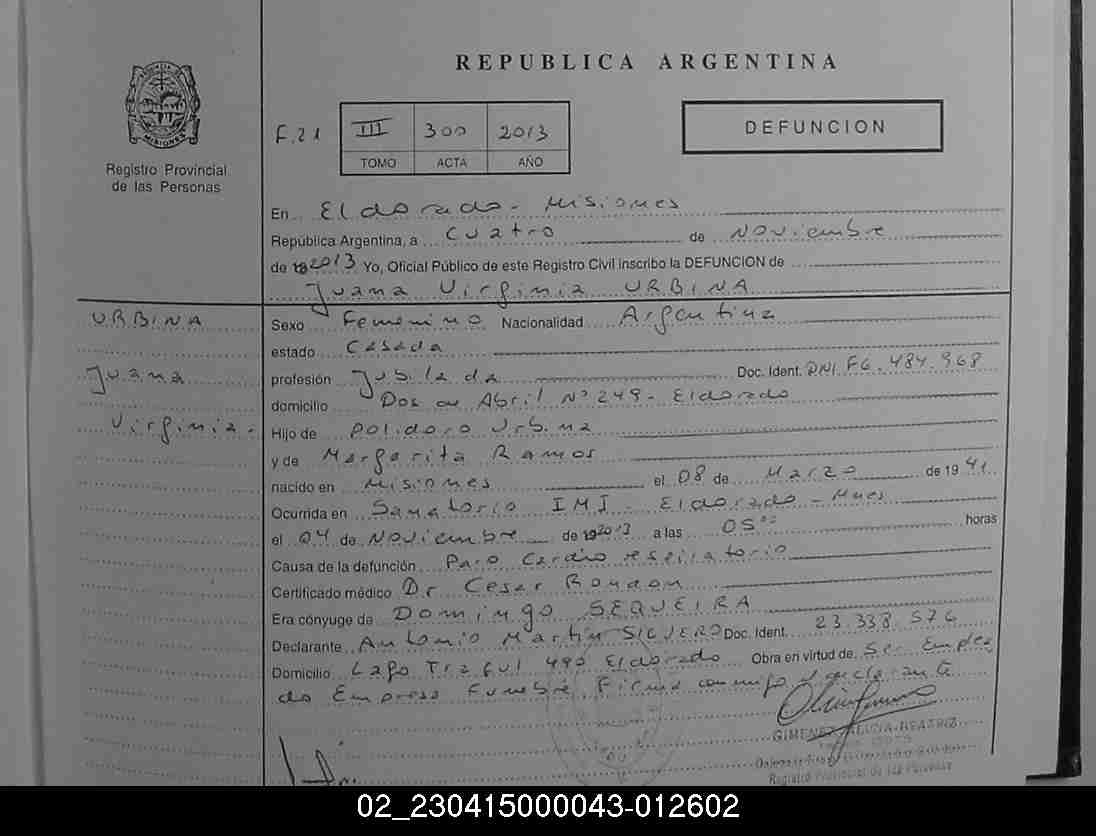 REPUBLICA ARGENTINA
MISIONES
Registro Provincial
de las Personas
F.21 III 300 2013
TOMO ACTA AÑO
DEFUNCION
En Eldorado - Misiones
República Argentina, a Cuatro de Noviembre
de 2013 Yo, Oficial Público de este Registro Civil inscribo la DEFUNCION de
Juana Virginia URBINA
URBINA
Juana
Virginia.-
Sexo Femenino Nacionalidad Argentina
estado Casada
profesión Jubilada Doc. Ident. DNI F6.484.968
domicilio Dos de Abril Nº 249 - Eldorado
Hijo de Polidoro Urbina
y de Margarita Ramos
nacido en Misiones el 08 de Marzo de 1941
Ocurrida en Sanatorio IMI - Eldorado - Mnes
el 04 de Noviembre de 2013 a las 05⁰⁰ horas
Causa de la defunción Paro Cardio respiratorio
Certificado médico Dr Cesar Rondon
Era cónyuge de Domingo SEQUEIRA
Declarante Antonio Martin Doc. Ident. 23.338.576
Domicilio Lago Traful 490 Eldorado Obra en virtud de Ser Emplea
do Empresa Funebre. Firma conmigo el declarante
GIMENEZ BEATRIZ
Registro Provincial de las Personas
02_230415000043-012602